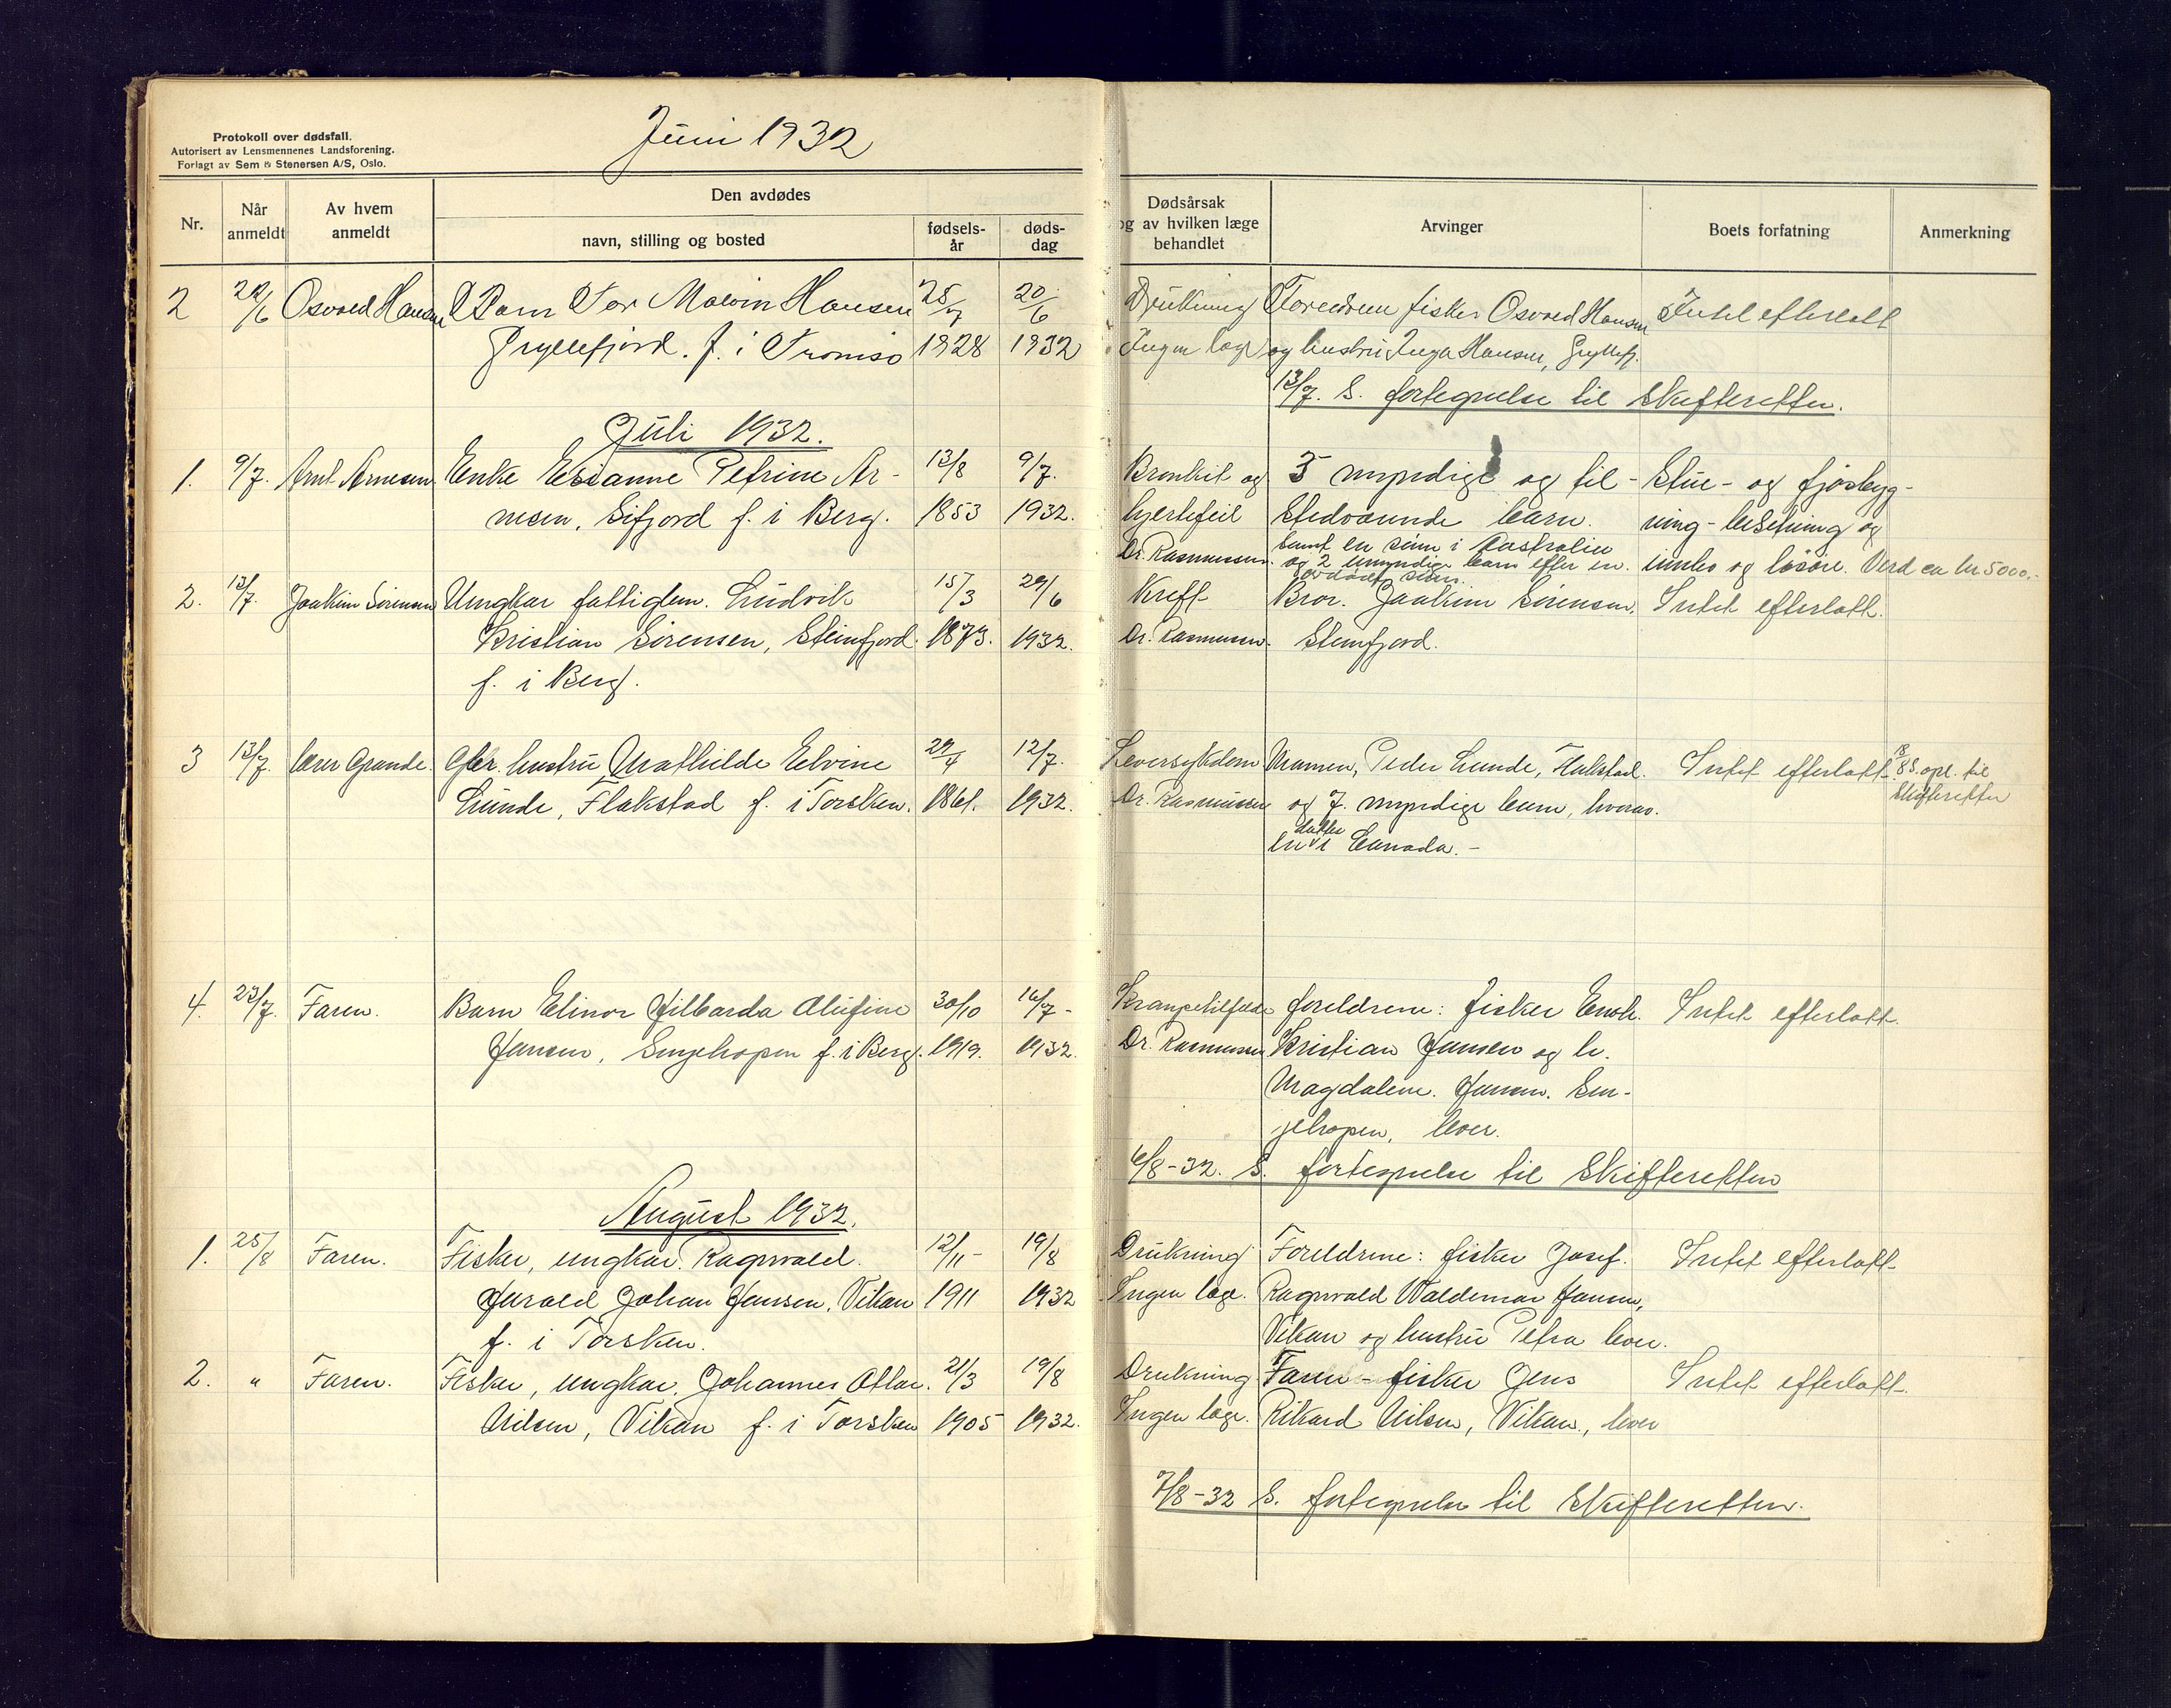 Protokoll over dødsfall.
Autorisert av Lensmennenes Landsforening.
Forlagt av Sem & Stenersen A/S, Oslo.
Juni 1932
Nr.
Når anmeldt
Av hvem anmeldt
Den avdødes
navn, stilling og bosted
fødsels-år
døds-dag
Dødsårsak
og av hvilken læge
behandlet
Arvinger
Boets forfatning
Anmerkning
2 22/6 Osvald Hansen Barn Tor Malvin Hansen 25/7 20/6 Drukning Foreldrene fisker Osvald Hansen Intet efterlatt
Gryllefjord. f. i Tromsø 1928 1932 Ingen læge og hustru Inga Hansen, Gryllefj.
13/7. S. fortegnelse til Skifteretten.
Juli 1932.
1. 9/7. Arnt Arnesen Enke Elianne Petrine Ar- 13/8 9/7. Bronkit og 5 myndige og til- Stue- og fjøsbyg-
nesen, Sifjord f. i Berg. 1853 1932. hjertefeil stedværende barn. ning - besetning og
Dr. Rasmussen. samt en sønn i Australien
og 2 umyndige barn efter en innbo og løsøre. Verd ca kr 5000,-
avdød sønn.
2. 13/7. Joakim Sørensen Ungkar fattiglem. Ludvik 15/3 29/6 Kreft Bror. Joakim Sørensen, Intet efterlatt.
Kristian Sørensen, Steinfjord. 1873. 1932. Dr. Rasmussen. Steinfjord.
f. i Berg.
3 13/7. lærer Grande. Gbr. hustru Mathilde Elvine 29/4 12/7. Leversykdom Mannen, Peder Lunde, Flakstad. Intet efterlatt. 8/8 S. opl. til
Lunde, Flakstad f. i Torsken. 1861. 1932. Dr. Rasmussen og 7. myndige barn, hvorav. Skifteretten
datter
en i Canada. -
4. 23/7. Faren. Barn Elinor Hilbarda Olufine 30/10 16/7 - Krampetilfelde foreldrene: fisker Enok. Intet efterlatt.
Jensen, Senjehopen f. i Berg. 1919. 1932. Dr. Rasmussen Kristian Jensen og h.
Magdalene. Jensen. Sen-
jehopen, lever.
6/8 - 32. S. fortegnelse til Skifteretten
August 1932.
1. 25/8 Faren. Fisker, ungkar. Ragnvald. 12/11 - 19/8 Drukning Foreldrene: fisker Josef. Intet efterlatt
Harald Johan Jensen, Vikan 1911 1932 Ingen læge. Ragnvald Waldemar Jensen,
f. i Torsken. Vikan og hustru Petra lever.
2. " Faren. Fisker, ungkar. Johannes Ottar. 21/3 19/8 Drukning Faren - fisker Jens Intet efterlatt.
Nilsen, Vikan f. i Torsken 1905 1932. Ingen læge. Rikard Nilsen, Vikan., lever
7/8 - 32 S. fortegnelse til Skifteretten.